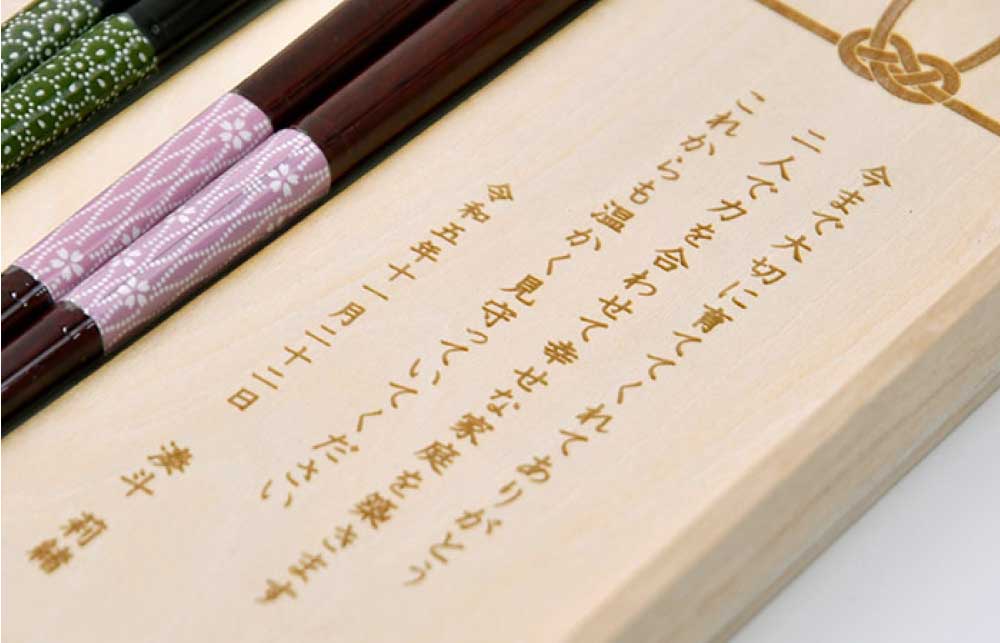 今まで大切に育ててくれてありがとう
二人で力を合わせて幸せな家庭を築きます
これからも温かく見守っていてください
令和五年十一月二十二日
湊斗 莉緒